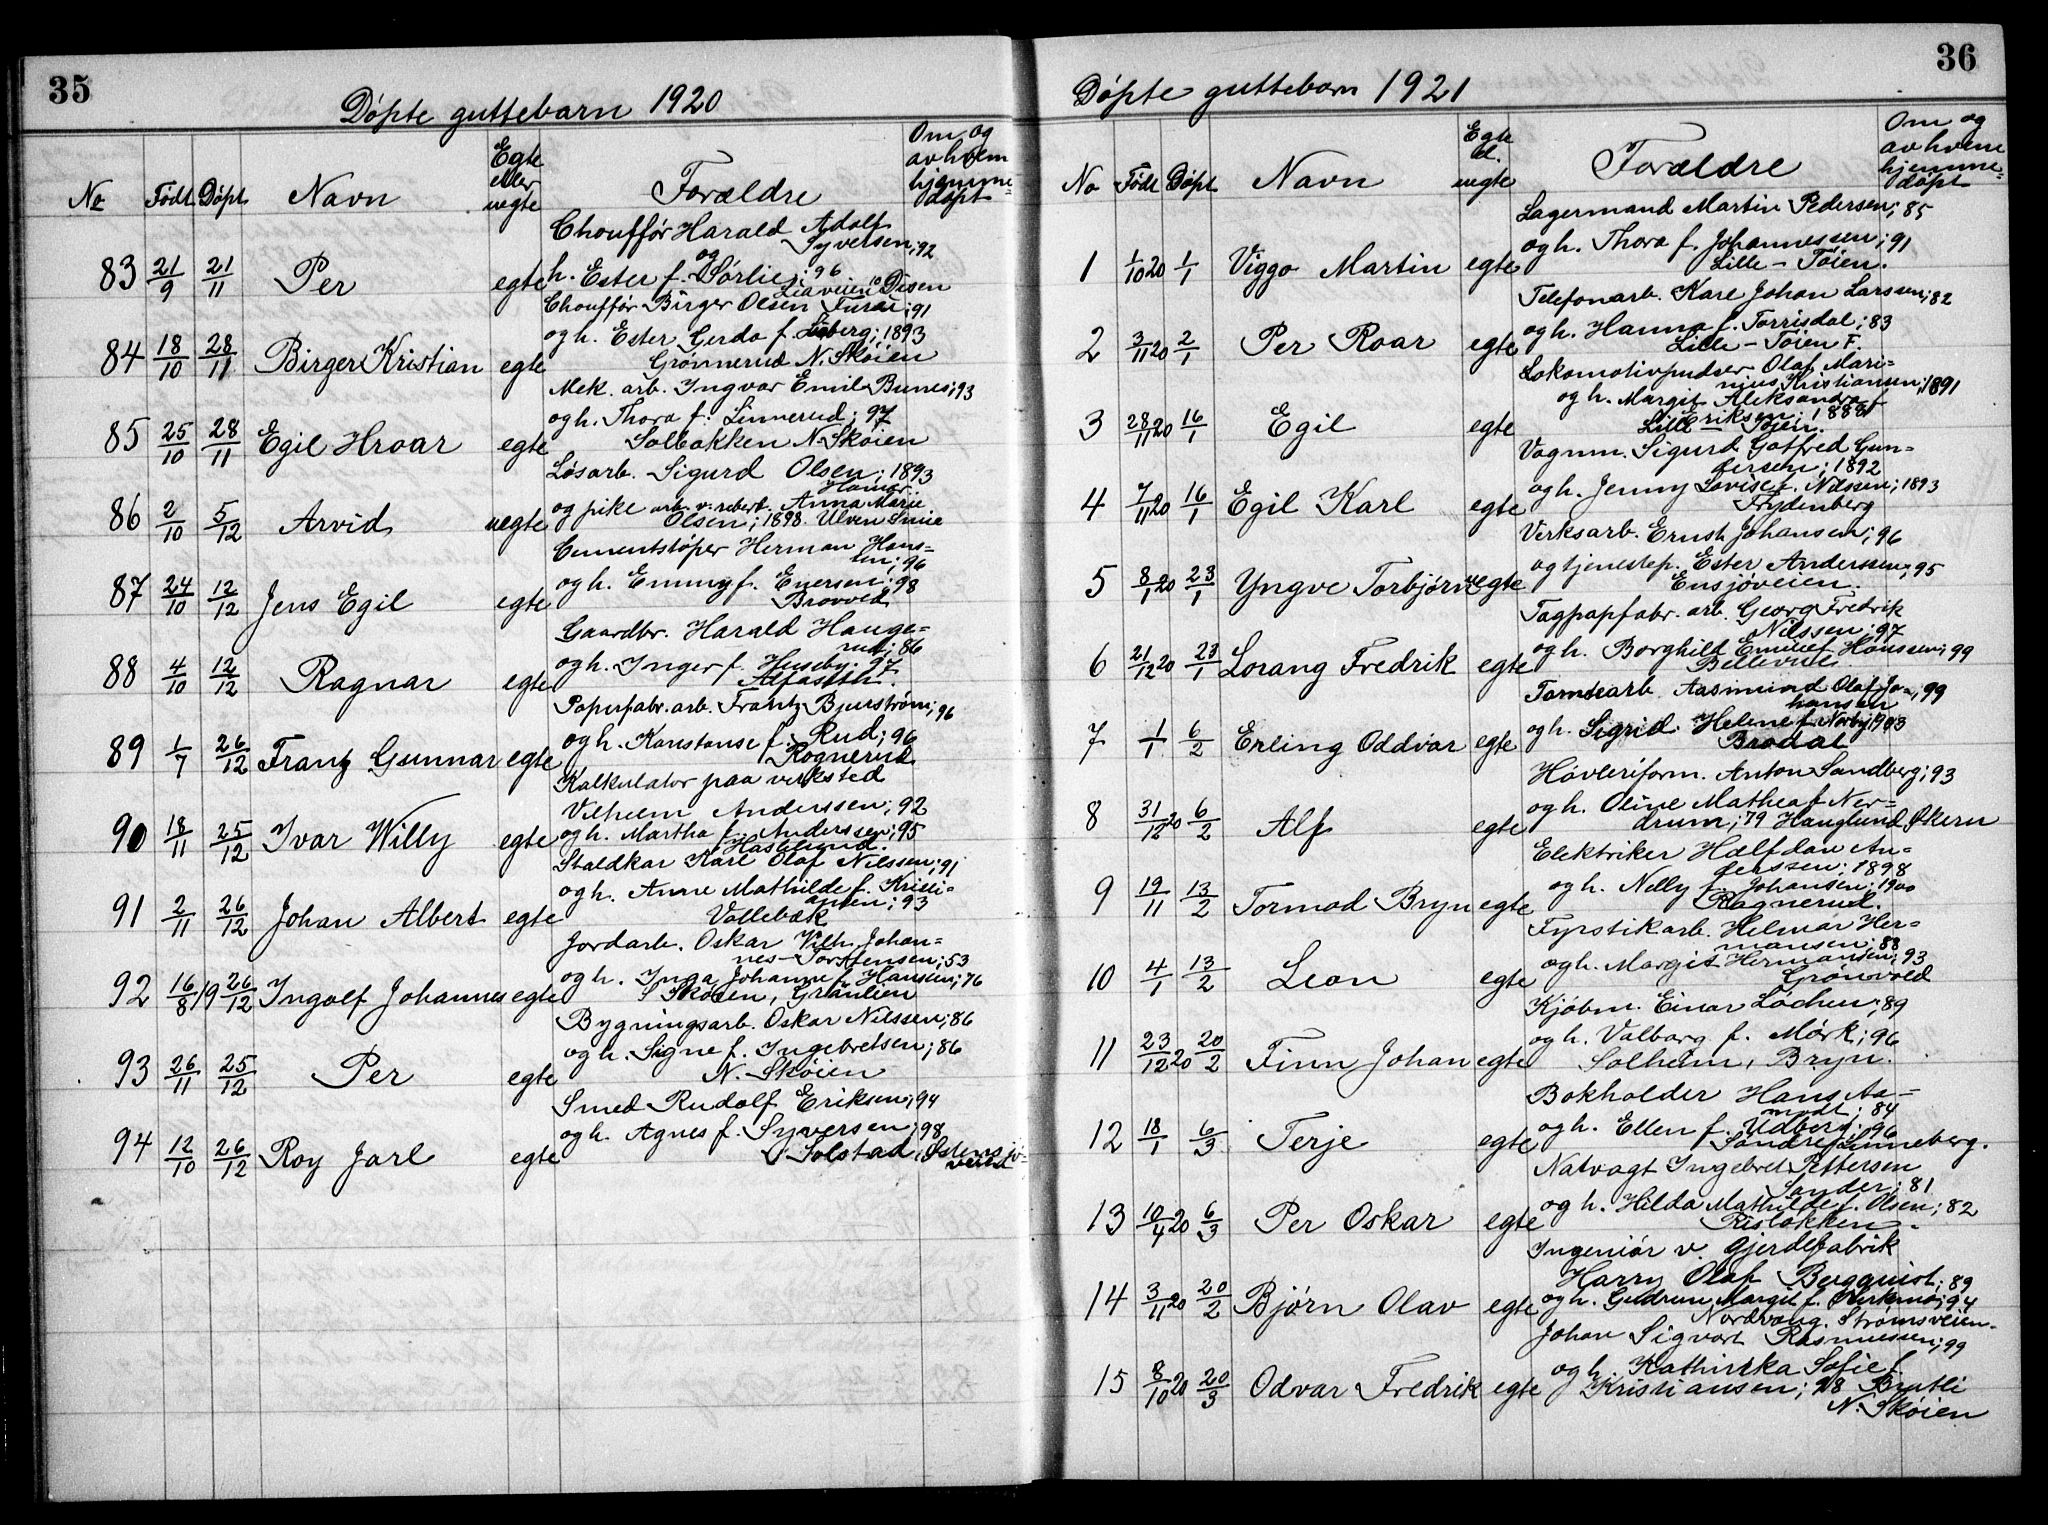 35
Døpte guttebarn 1920
No Født Døpt Navn Egte eller uegte Forældre Om og av hvem hjemme=døpt
Chouffør Harald Adolf
Syversen; 92
og
83 21/9 21/11 Per egte h. Ester f. Sørlie; 96
Liaveien 10 Disen
Chouffør Birger Olsen Furui; 91
84 18/10 28/11 Birger Kristian egte og h. Ester Gerda f. 1893
Grønnerud N. Skøien
Mek. arb. Ingvar Emil Bunes; 93
og h. Thora f. Linnerud; 97
85 25/10 28/11 Egil Hroar egte Solbakken N. Skøien
Løsarb. Sigurd Olsen; 1893
Hamar.
86 2/10 5/12 Arvid uegte og pike arb. v. Anna Marie
Olsen; 1898. Ulven
Cementstøper Herman Hans=
sen; 96
87 24/10 12/12 Jens Egil egte og h. Emmy f. Enersen; 98
Brovold
Gaardbr. Harald Hauge=
rud; 86
88 4/10 12/12 Ragnar egte og h. Inger f. Huseby; 97
Alfaseth.
Papirfabr. arb. Frantz Bjurstrøm; 96
89 1/7 26/12 Frantz Gunnar egte og h. Konstanse f. Rud; 96
Rognerud
Kalkulator paa verksted
Vilhelm Anderssen; 92
90 18/11 25/12 Ivar Willy egte og h. Martha f. Anderssen; 95
Haslelund.
Staldkar Karl Olaf Nilssen; 91
91 2/11 26/12 Johan Albert egte og h. Anne Mathilde f. Kristi=
ansen; 93
Vollebæk
Jordarb. Oskar Vilh. Johan=
nes Torstensen; 53
92 16/8 19 26/12 Ingolf Johannes egte og h. Inga Johanne f. Hansen; 76
Skøien, Grønlien
Bygningsarb. Oskar Nilssen; 86
93 26/11 25/12 Per egte og h. Signe f. Ingebretsen; 86
N. Skøien
Smed Rudolf Eriksen; 94
94 12/10 26/12 Roy Jarl egte og h. Agnes f. Syversen; 98
Solstad, Østensjø=
veien
36
Døpte guttebarn 1921
No Født Døpt Navn Egte el. uegte Forældre Om og av hvem hjemme=døpt
Lagermand Martin Pedersen; 85
1 1/10 20 1/1 Viggo Martin egte og h. Thora f. Johannessen; 91
Lille-Tøien.
Telefonarb. Karl Johan Larssen; 82
2 3/11 20 2/1 Per Roar egte og h. Hanna f. Torrisdal; 83
Lille-Tøien F.
Lokomotivpudser Olaf Mari=
nius Kristiansen; 1891
3 28/11 20 16/1 Egil egte og h. Margit Aleksandra f.
Eriksen; 1888
Lille Tøien.
Vognm. Sigurd Gotfred Gun=
dersen; 1892
4 7/11 20 16/1 Egil Karl egte og h. Jenny Lovise f. Nilssen; 1893
Frydenberg
Verksarb. Ernst Johansen; 96
5 8/1 20 23/1 Yngve Torbjørn uegte og tjenestep. Ester Anderssen; 95
Ensjøveien.
Tagpapfabr. arb. Georg Fredrik
Nilssen; 97
6 21/12 20 23/1 Lorang Fredrik egte og h. Borghild Emilie f. Hanssen; 99
Bellevue
Tomtearb. Aasmund Olaf Jo=; 99
hansen
7 1/1 6/2 Erling Oddvar egte og h. Sigrid Helene f. Norby; 1903
Brodal
Høvleriform. Anton Sandberg; 93
8 31/12 20 6/2 Alf egte og h. Oline Mathea f. Ner=
drum; 79 Hauglund, Økern
Elektriker Halfdan An=
derssen; 1898
9 19/11 13/2 Tormod Bryn egte og h. Nelly f. Johansen; 1900
Rognerud.
Fyrstikarb. Helmar Her=
mansen; 88
10 4/1 13/2 Leon egte og h. Margit Hermansen; 93
Grønvold
Kjøbm. Einar Løchen; 89
11 23/12 20 20/2 Finn Johan egte og h. Valborg f. Mørk; 96
Solheim, Bryn.
Bokholder Hans Aa=
modt; 84
12 18/1 6/3 Terje egte og h. Ellen f. Udberg; 96
Søndre Linneberg.
Natvagt Ingebret Pettersen
Sander; 81
13 10/4 20 6/3 Per Oskar egte og h. Hilda Mathilde f. Olsen; 82
Risløkken.
Ingeniør v. Gjerdefabrik
Harry Olaf Bergquist; 89
14 3/11 20 20/2 Bjørn Olav egte og h. Gudrun Margit f. 94
Nordvang. Strømsveien.
Johan Sigvart Rasmussen; 99
15 8/10 20 20/3 Odvar Fredrik egte og h. Kathinka Sofie f.
Kristiansen; 98 Bratli
N. Skøien